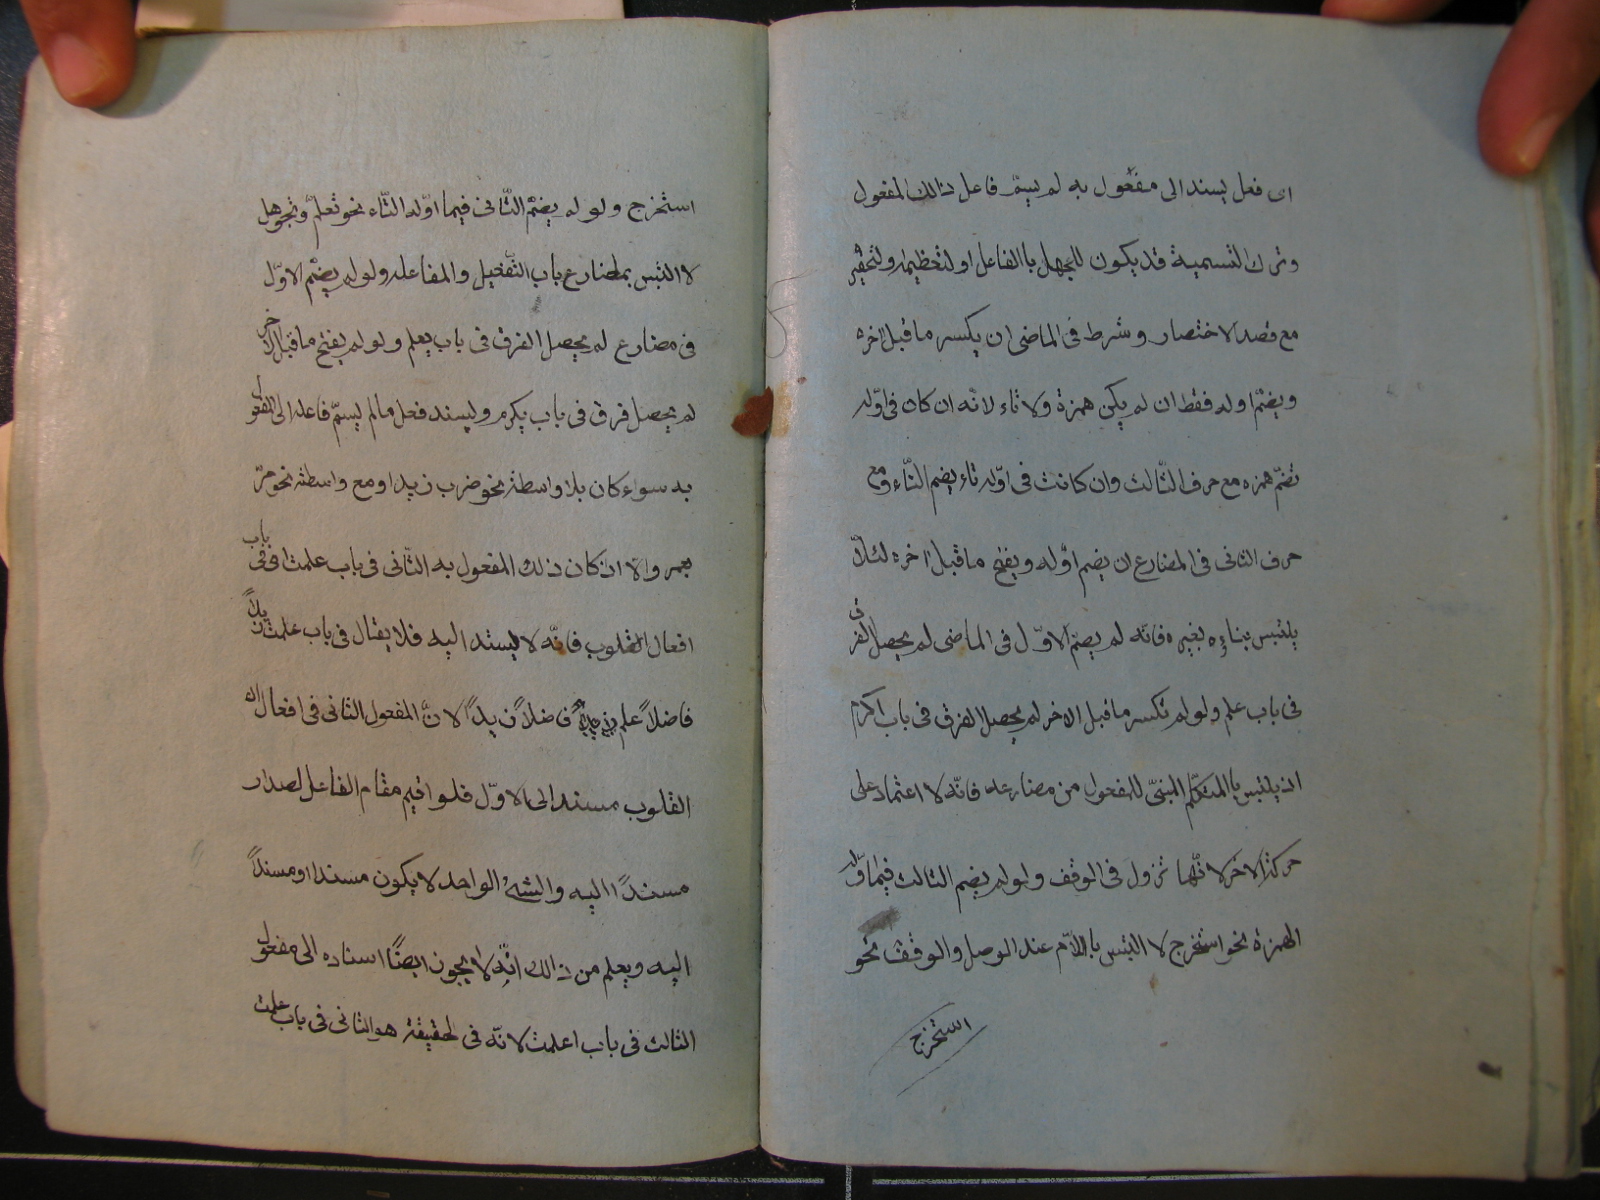 اى فعل يسند الى مفعول به لم يسمّ فاعل ذالك المفعول
وترك التسمية قد يكون للجهل باالفاعل او لتعظيمه ولتحقير
مع قصد الاختصار وشرط فى الماضى ان يكسر ما قبل اخره
ويضمّ اوله فقط ان لم يكن همزة ولا تاء لانه ان كان فى اوّله
تضمّ همزه مع حرف الثّالث وان كانت فى اوّله تاء يضم التّاء ومع
حرف الثانى فى المضارع ان يضم اوّله ويفتح ما قبل اخره لئلاّ
يلتبس بناءه بغيره فانّه لم يضمّ الاوّل فى الماضى لم يحصل الفرق
فى باب علم ولو لم تكسر ما قبل الاخر لم يحصل الفرق فى باب اكرم
اذ يلتبس باالمتكلّم المبنىّ للمفعول من مضارعه فانّه لا اعتماد على
حركة الاخر لانّها تزول فى الوقف ولو لم يضم الثالث فيما اوّله
الهمزة نحو استخرج لا التبس باالام عند الوصل والوقف نحو
استخرج
استخرج ولو لم يضمّ الثّانى فيما اوّله التّاء نحو تعلم وتجوهل
لا التبس بمضارع باب التّفعيل والمفاعله ولو لم يضم الاوّل
فى مضارع لم يحصل الفرق فى باب يعلم ولو لم يفتح ما قبل الاخر
لم يحصل فرق فى باب يكرم ويسند فعل مالم يسمّ فاعله الى المفعو
به سواء كان بلا واسطة نحو ضرب زيد او مع واسطة نحو مرّ
بعمر والا ان كان ذلك المفعول به الثّانى فى باب علمت اى فى باب
افعال القلوب فانّه لا يسند اليه فلا يقال فى باب علمت زيداً
فاضلاً علم فاضلاً زيداً لانّ المفعول الثانى فى افعال ال
القلوب مسند الى الاوّل فلو اقيم مقام الفاعل لصدار
مسنداً اليه والشئ الواحد لا يكون مسندا او مسنداً
اليه ويعلم من ذالك انّه لا يجوز ايضًا اسناده الى مفعول
الثالث فى باب اعلمت لانّه فى لحقيقة هو الثانى فى باب علمت